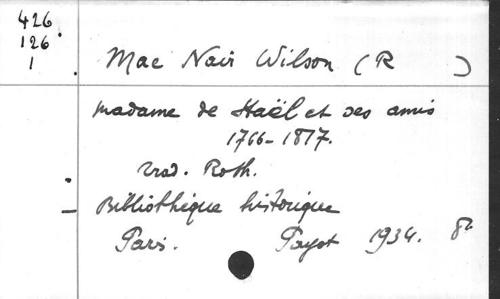 426.
126
1
Mac Nair Wilson (R )
Madame de Staël et ses amis
1766-1817.
trad. Roth.
Bibliothèque historique
Paris. Payot 1934. 8º